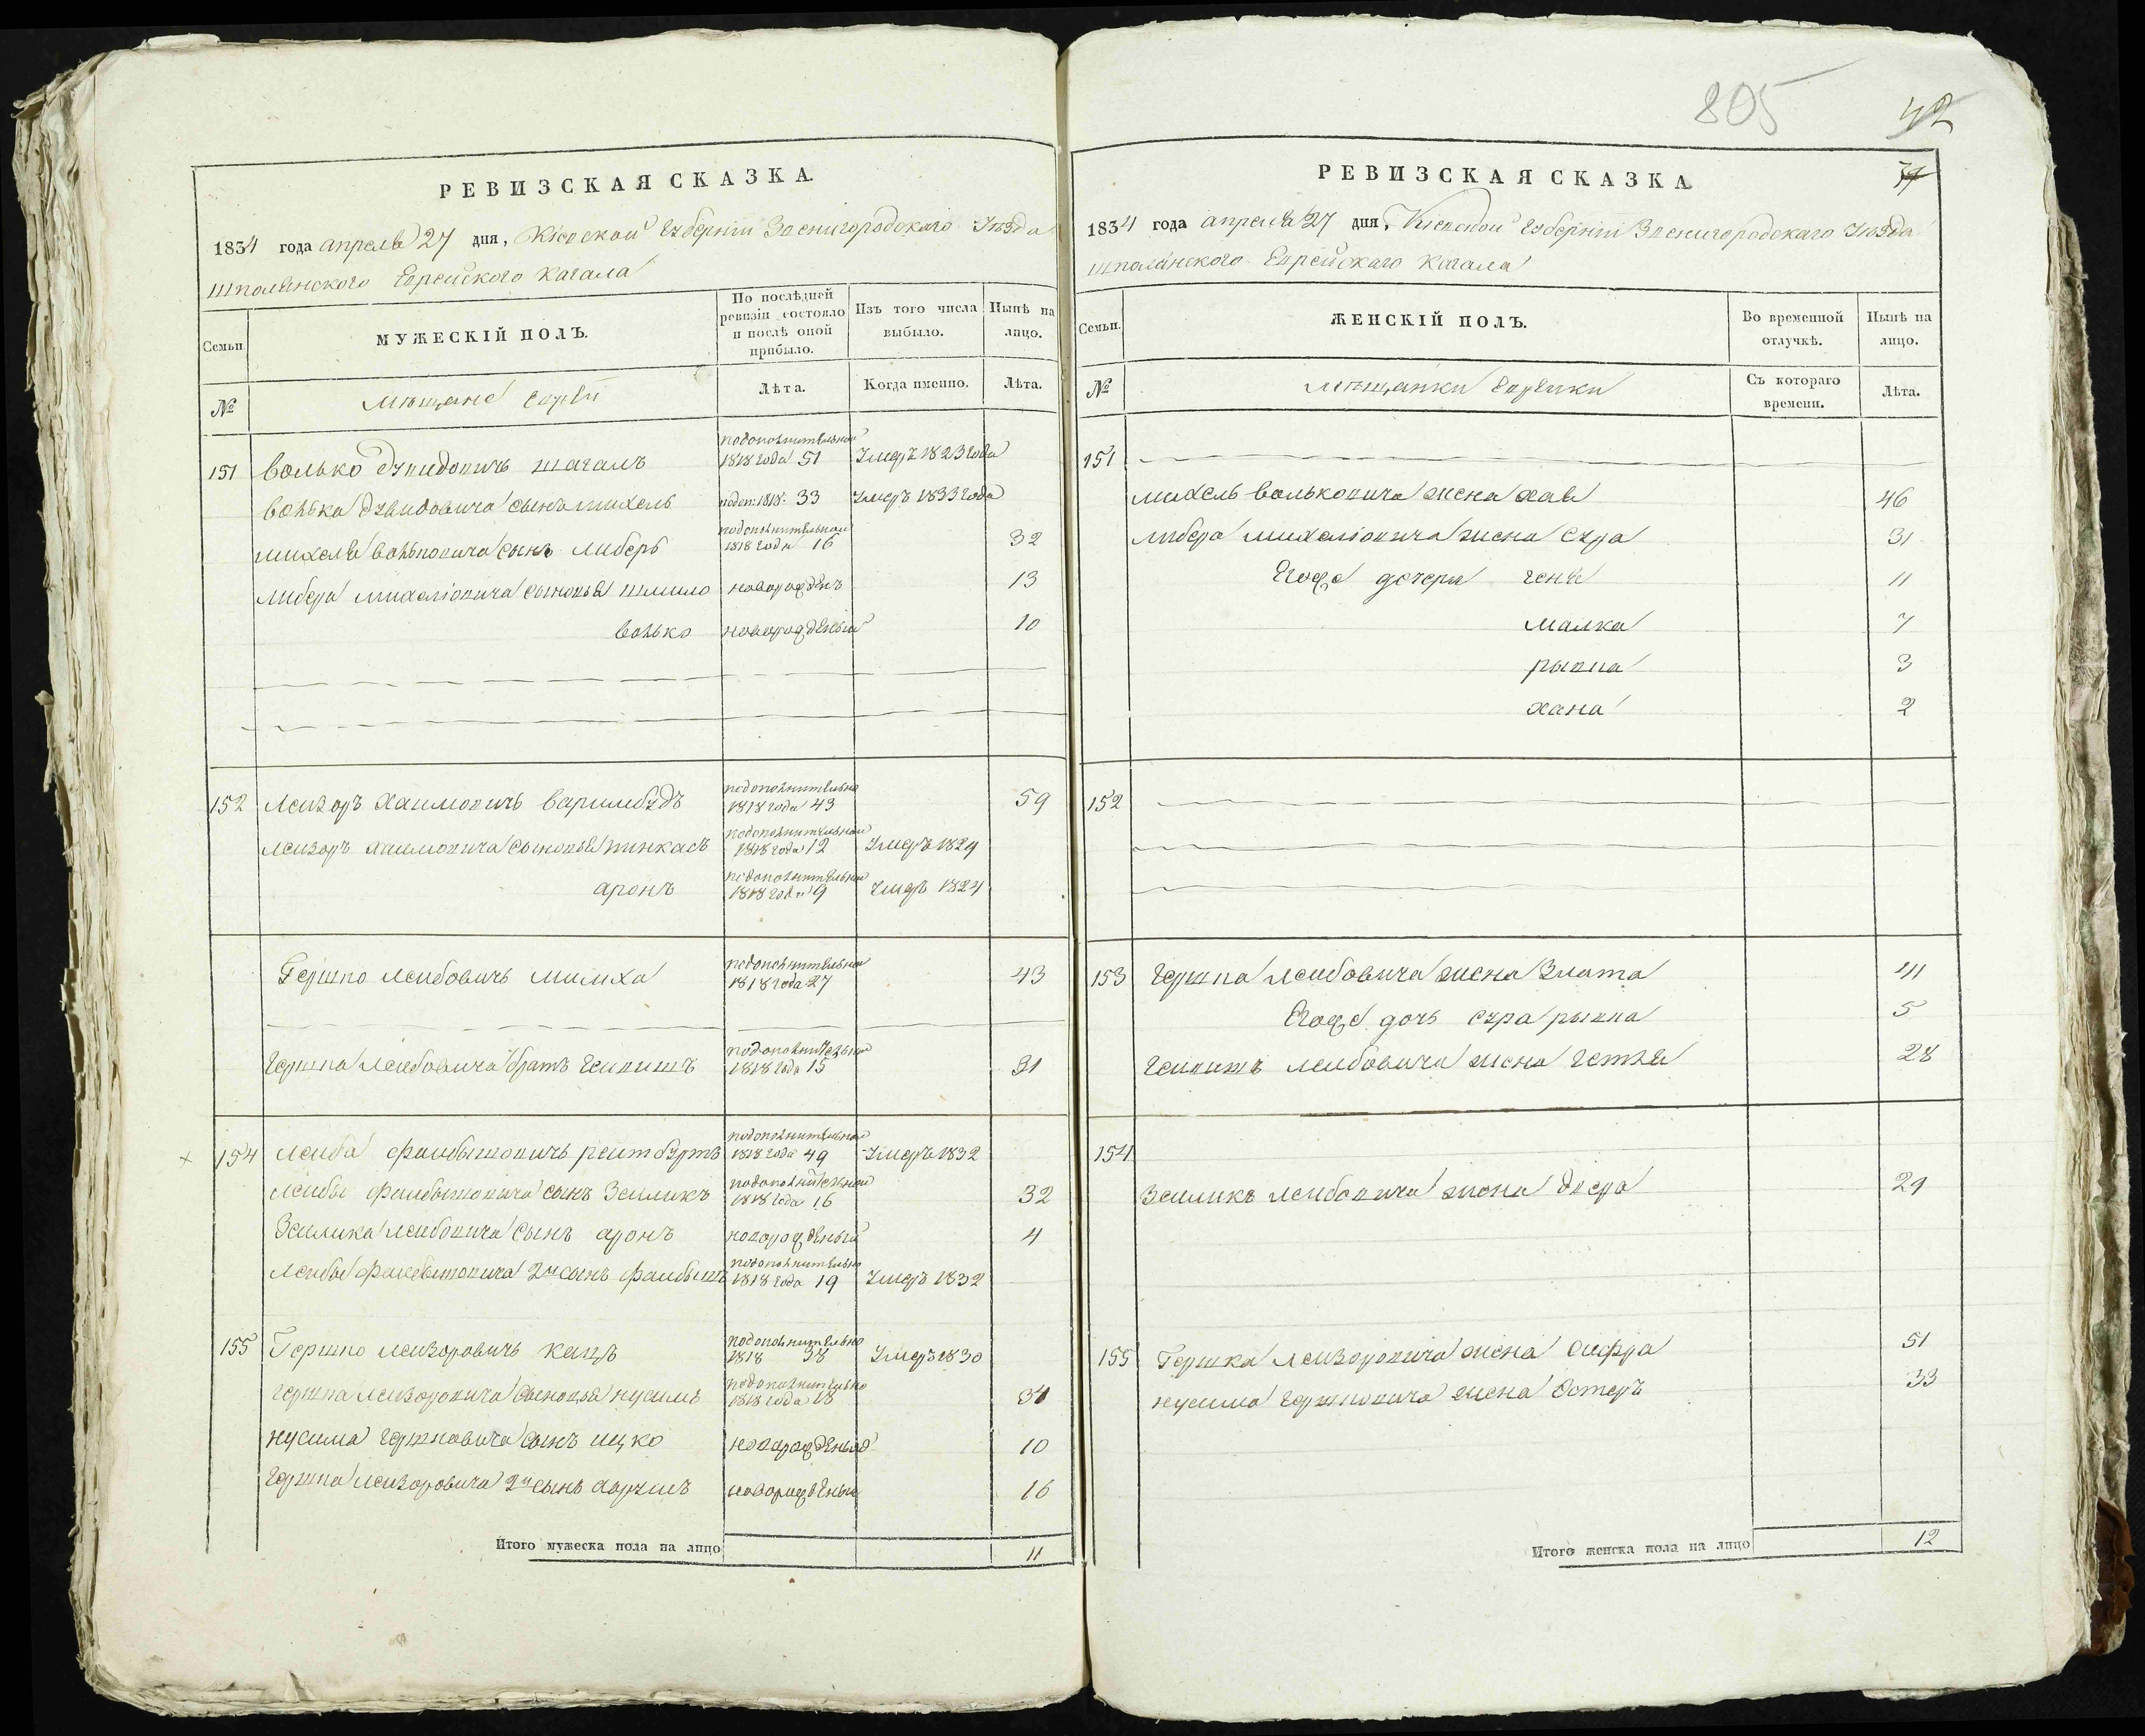 805
42
РЕВИЗСКАЯ СКАЗКА.
1834 года апреля 27 дня, Кіевской Губерніи Звенигородского Уѣзда
шполянского Еврейского Кагала
Семьи.
МУЖЕСКІЙ ПОЛЪ.
По послѣдней ревизіи состояло и послѣ оной прибыло.
Изъ того числа выбыло.
Нынѣ на лицо.
№
Мѣщане Евреи
Лѣта.
Когда именно.
Лѣта.
151 Волько Дувидовичъ шагалъ подополнительной 1818 года 51 Умеръ 1823 года
Волька Дувидовича сынъ михель подоп: 1818: 33 Умеръ 1833 года
михеля Вольковича сынъ либеръ подополнительной 1818 года 16 32
либера михеліовича сыновья шлиомо новорожденъ 13
Волько новорожденый 10
152 Лейзоръ Хаимовичъ Варимбудъ подополнительно 1818 года 43 59
Лейзоръ хаимовича сыновья пинкасъ подополнительной 1818 года 12 Умеръ 1829
аронъ подополнительной 1818 года 9 Умеръ 1824
Гершко Лейбовичъ милиха подополнительной 1818 года 27 43
Гершка Лейбовича братъ Гейнишъ подополнительной 1818 года 15 31
154 Лейба файбышовичъ рейтбуртъ подополнительной 1818 года 49 Умеръ 1832
Лейбы файбышовича сынъ Зейликъ подополнительной 1818 года 16 32
Зейлика Лейбовича сынъ аронъ новорожденый 4
Лейбы файбышовича 2й сынъ файбишъ подополнительно 1818 года 19 Умеръ 1832
155 Гершко Лейзоровичъ Кацъ подополнительно 1818 38 Умеръ 1830
Гершка Лейзоровича сыновья нусимъ подополнительно 1818 года 18 34
нусима Гершковича сынъ ицко новорожденый 10
Гершка Лейзоровича 2й сынъ новорожденый 16
Итого мужеска пола на лицо 11
РЕВИЗСКАЯ СКАЗКА
1834 года апреля 27 дня, Кіевской Губерніи Звенигородскаго Уѣзда
шполянского Еврейскаго Кагала
Семьи.
ЖЕНСКІЙ ПОЛЪ.
Во временной отлучкѣ.
Нынѣ на лицо.
№
Мѣщанки Еврейки
Съ котораго времени.
Лѣта.
151
михель Вольковича жена хая 46
либера михеліовича жена Сура 31
Егоже дочери Геня 11
малка 7
рывка 3
хана 2
152
153 Гершка Лейбовича жена Злата 41
Егоже дочь Сура рывка 5
Гейнишъ Лейбовича жена Гетья 28
154
Зейликъ Лейбовича жена Двера 29
155 Гершка Лейзоровича жена сифра 51
нусима Гершковича жена Эстеръ 33
Итого женска пола на лицо 12